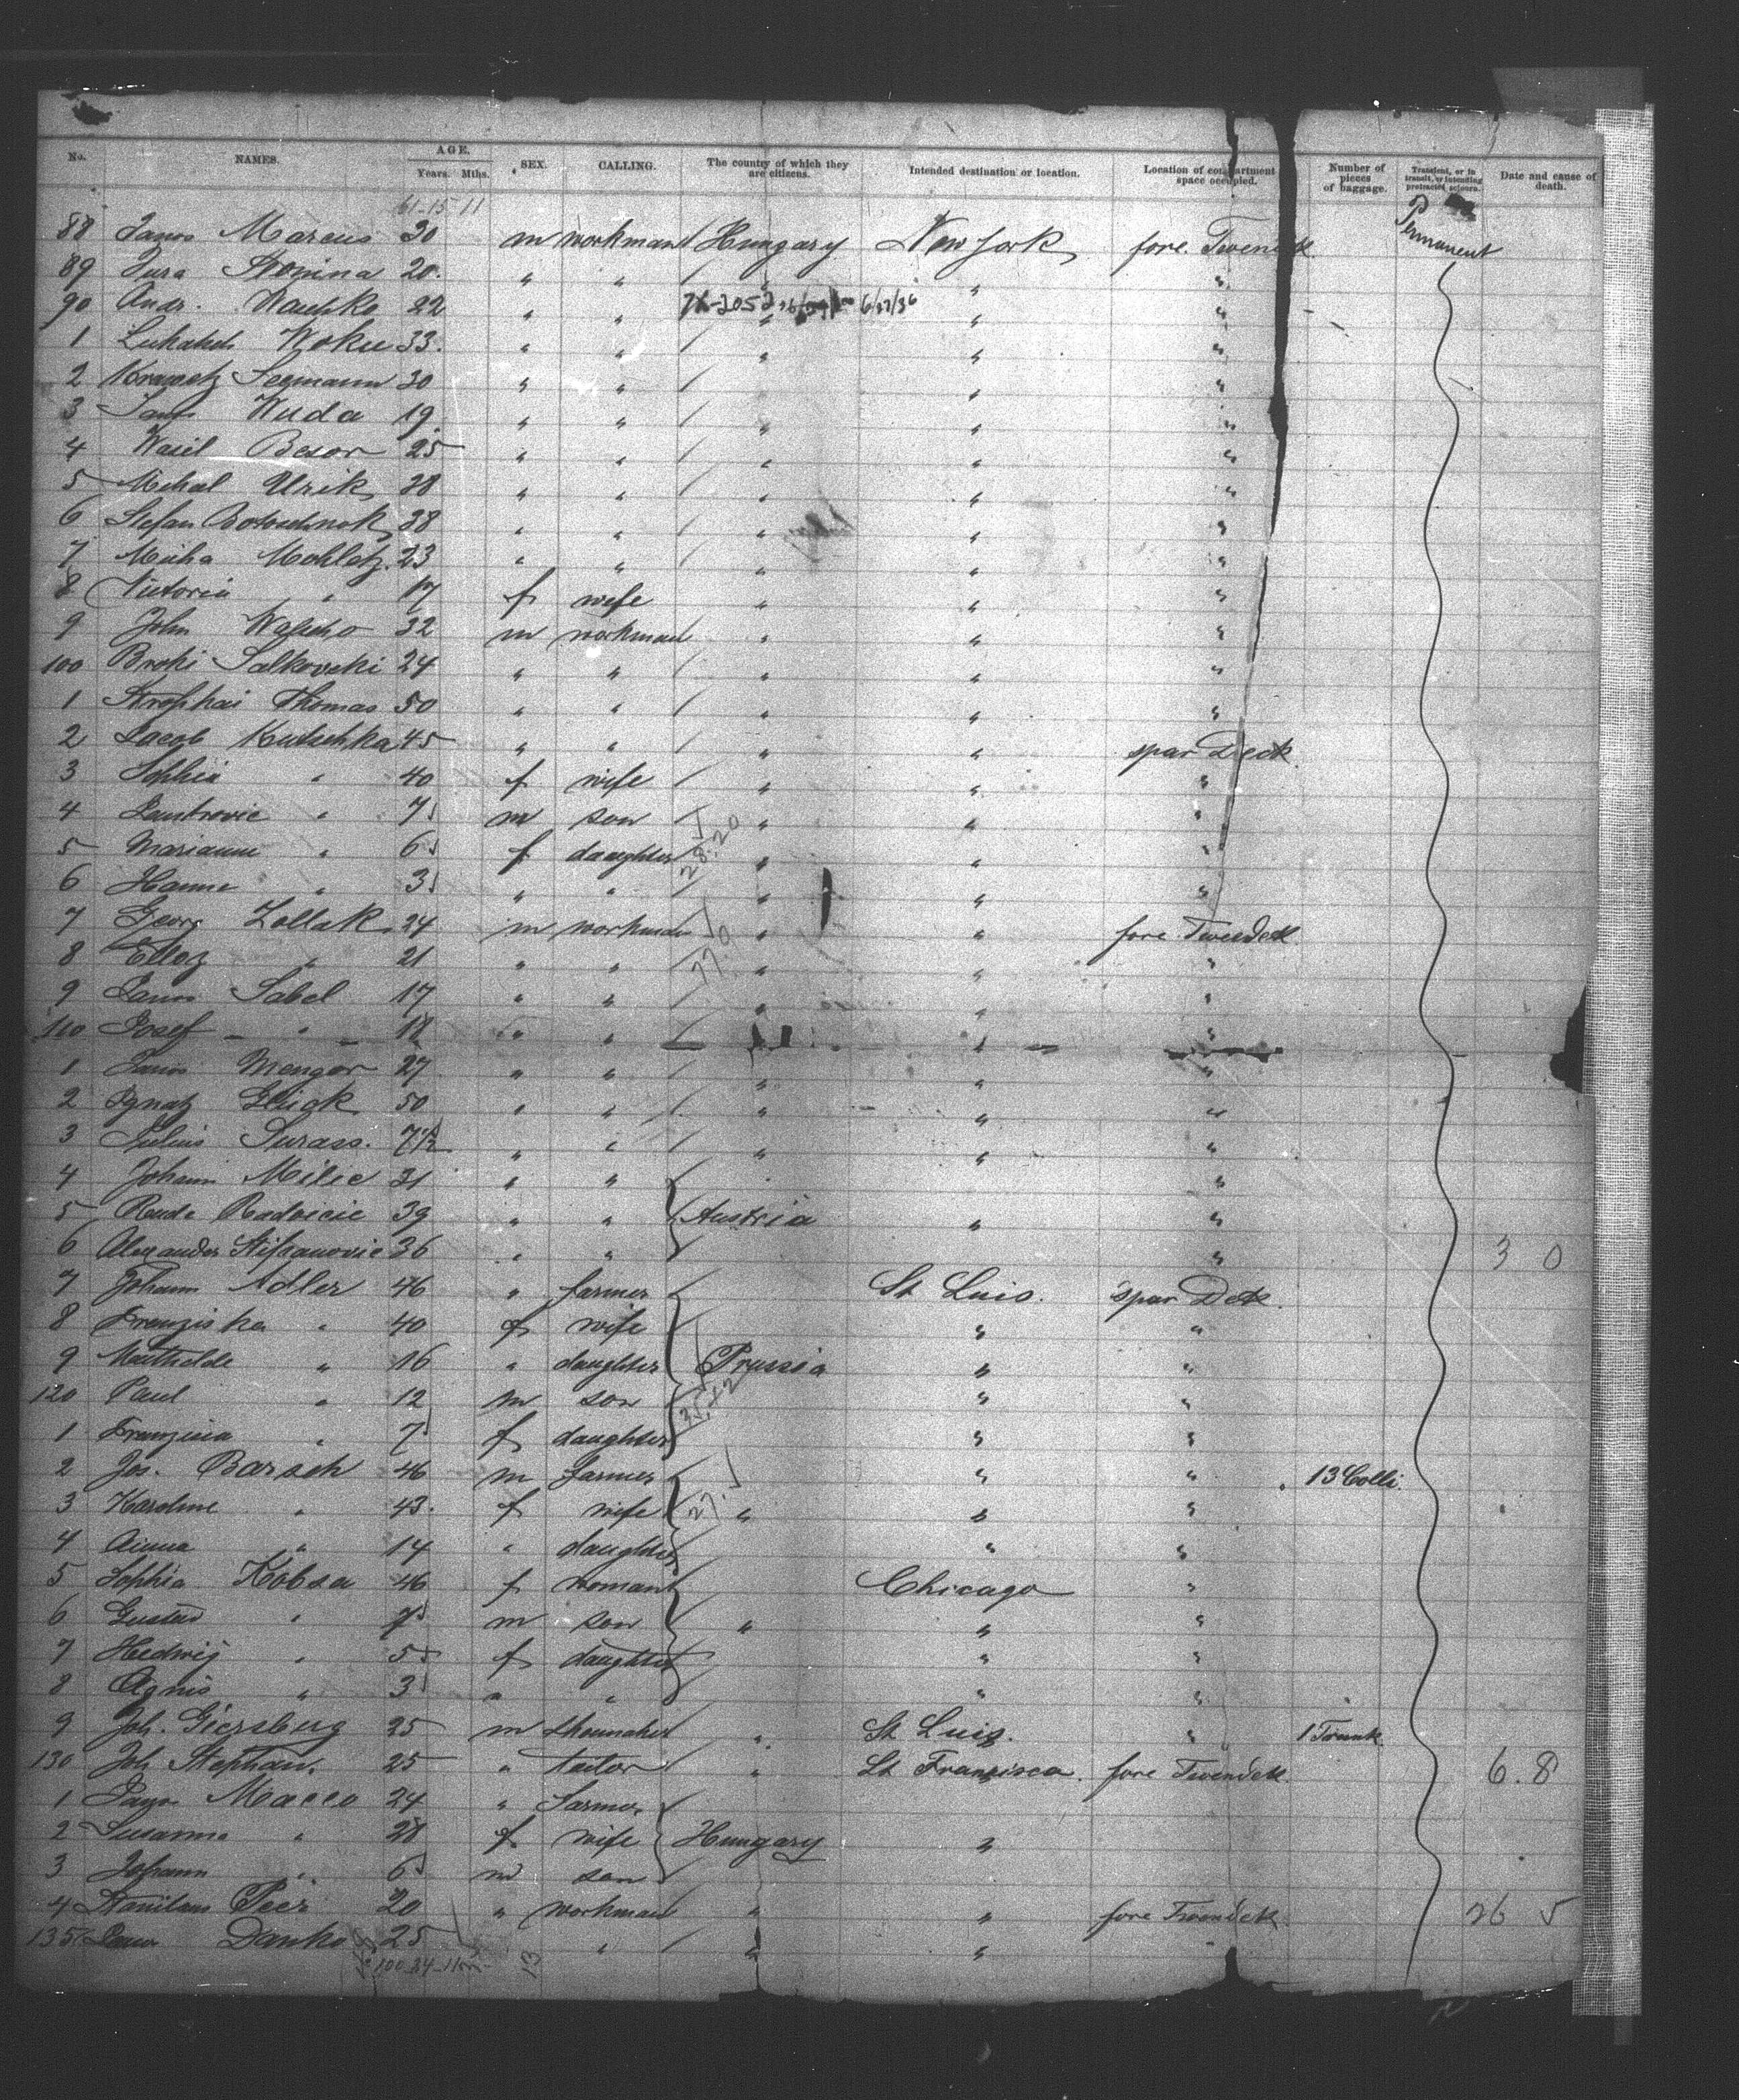 No. NAMES. AGE. Years. Mths. SEX. CALLING. The country of which they are citizens. Intended destination or location. Location of compartment space occupied. Number of pieces of baggage. Transient, or in transit, or intending protracted sojourn. Date and cause of death.
61-15 11
88 Janos Marcus 30 m workman Hungary New York fore. Twendeck Permanent
89 Jura 20 " " " " "
90 Andr. 22 " " 6/27/36 " "
1 33 " " " " "
2 Segmann 30 " " " " "
3 Janos Wuda 19 " " " " "
4 Wasil Besor 25 " " " " "
5 Mihal Urik 28 " " " " "
6 Stefan 38 " " " " "
7 Micha Mohletz 23 " " " " "
8 Victoria " 17 f wife " " "
9 John 32 m workman " " "
100 Broki Salkovski 24 " " " " "
1 Thomas 50 " " " " "
2 Jacob Kutschka 45 " " " " spar Deck
3 Sophia " 40 f wife " " "
4 " 7 m son " " "
5 Marianne " 6 f daughter " " "
6 Hanne " 3 " " " " "
28.20
7 Georg Zollak 24 m workman " " fore Twendeck
8 " 21 " " " " "
9 Janos Sabel 17 " " " " "
110 Josef " 18 " " " " "
1 Janos Mengor 27 " " " " "
2 Ignatz Glück 50 " " " " "
3 Julius Surass. 7 1/2 " " " " "
4 Johann Milic 31 " " "
5 Rude Radoicic 39 " " Austria " "
6 Alexander Stipanovic 36 " " " 3 0
7 Johann Adler 46 " farmer St Luis. spar Deck.
8 Franziska " 40 f wife " "
9 Mathilde " 16 " daughter Prussia " "
120 Paul " 12 m son " "
1 " 7 f daughter " "
2 Jos. Barsch 46 m farmer " " 13 Colli.
3 Karoline " 43 f wife " " "
4 " 14 " daughter " "
5 Sophia Kobsa 46 f woman Chicago "
6 Gustav " 7 m son " " "
7 Hedwig " 5 f daughter " "
8 Agnis " 3 " " " "
9 Joh. Giersberg 25 m shoemaker " St Luis. " 1 Trunk.
130 Joh Stephan. 25 " tailor " St Franzisca. fore Twendeck. 6.8
1 Macco 24 " farmer
2 Susanna " 28 f wife Hungary "
3 Johann " 6 m son
4 Peer 20 " workman " " fore Twendeck. 26 5
135 Danko 25 " " "
100 24-11
13